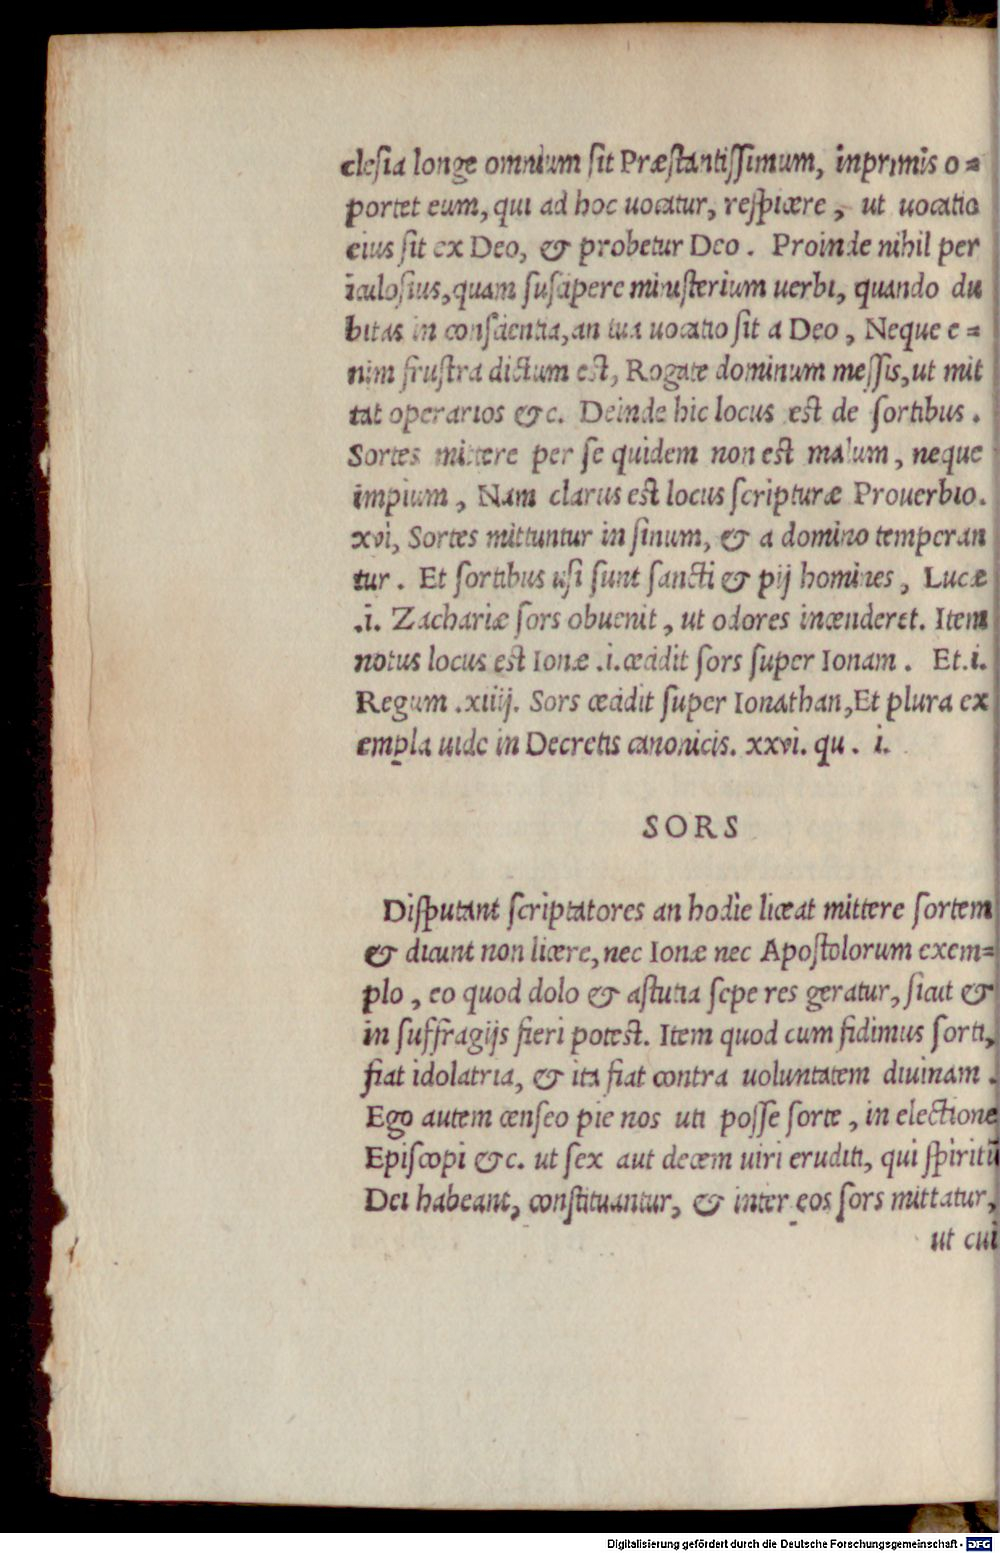 clesia longe omnium sit Præstantissimum, inprimis o=
portet eum, qui ad hoc uocatur, respicere, ut uocatio
eius sit ex Deo, & probetur Deo. Proinde nihil per
iculosius, quam suscipere ministerium uerbi, quando du
bitas in conscientia, an tua uocatio sit a Deo, Neque e=
nim frustra dictum est, Rogate dominum messis, ut mit
tat operarios &c. Deinde hic locus est de sortibus.
Sortes mittere per se quidem non est malum, neque
impium, Nam clarus est locus scripturæ Prouerbio.
xvi, Sortes mittuntur in sinum, & a domino temperan
tur. Et sortibus usi sunt sancti & pij homines, Lucæ
.i. Zachariæ sors obuenit, ut odores incenderet. Item
notus locus est Ionæ .i. cecidit sors super Ionam. Et.i.
Regum .xiiij. Sors cecidit super Ionathan, Et plura ex
empla uide in Decretis canonicis. xxvi. qu. i.
SORS
Disputant scriptatores an hodie liceat mittere sortem
& dicunt non licere, nec Ionæ nec Apostolorum exem=
plo, eo quod dolo & astutia sepe res geratur, sicut &
in suffragijs fieri potest. Item quod cum fidimus sorti,
fiat idolatria, & ita fiat contra uoluntatem diuinam.
Ego autem censeo pie nos uti posse sorte, in electione
Episcopi &c. ut sex aut decem uiri eruditi, qui spiritū
Dei habeant, constituantur, & inter eos sors mittatur,
ut cui
Digitalisierung gefördert durch die Deutsche Forschungsgemeinschaft - DFG